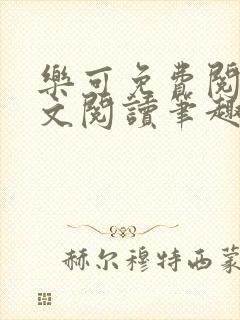 樂可免費閱
文閱讀筆趣
赫尔穆特西蒙